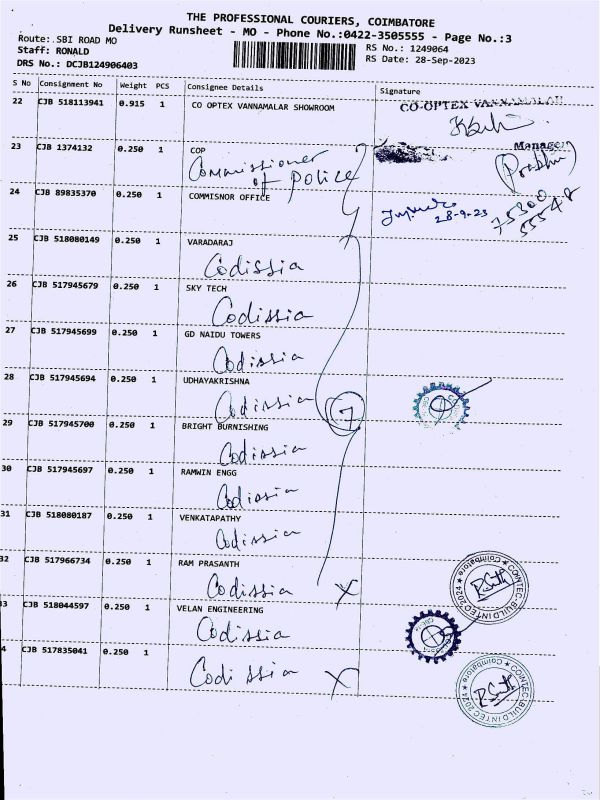 THE PROFESSIONAL COURIERS, COIMBATORE
Delivery Runsheet - MO - Phone No.:0422-3505555 - Page No.:3
Route: SBI ROAD MO
RS No.: 1249064
Staff: RONALD
RS Date: 28-Sep-2023
DRS No.: DCJB124906403
S No Consignment No Weight PCS Consignee Details Signature
22 CJB 518113941 0.915 1 CO OPTEX VANNAMALAR SHOWROOM CO-OPTEX VANNAMALAR
Manager
23 CJB 1374132 0.250 1 COP
Commissioner
of police
Prabhu
24 CJB 89835370 0.250 1 COMMISNOR OFFICE
28-9-23
75300
55548
25 CJB 518080149 0.250 1 VARADARAJ
Codissia
26 CJB 517945679 0.250 1 SKY TECH
Codissia
27 CJB 517945699 0.250 1 GD NAIDU TOWERS
Codissia
28 CJB 517945694 0.250 1 UDHAYAKRISHNA
Codissia
7
29 CJB 517945700 0.250 1 BRIGHT BURNISHING
Codissia
30 CJB 517945697 0.250 1 RAMWIN ENGG
Codissia
31 CJB 518080187 0.250 1 VENKATAPATHY
Codissia
32 CJB 517966734 0.250 1 RAM PRASANTH
Codissia X
COINTEC-BUILD INTEC 2024 ★ Coimbatore ★
3 CJB 518044597 0.250 1 VELAN ENGINEERING
Codissia
4 CJB 517835041 0.250 1
Codissia X
COINTEC-BUILD INTEC 2024 ★ Coimbatore ★